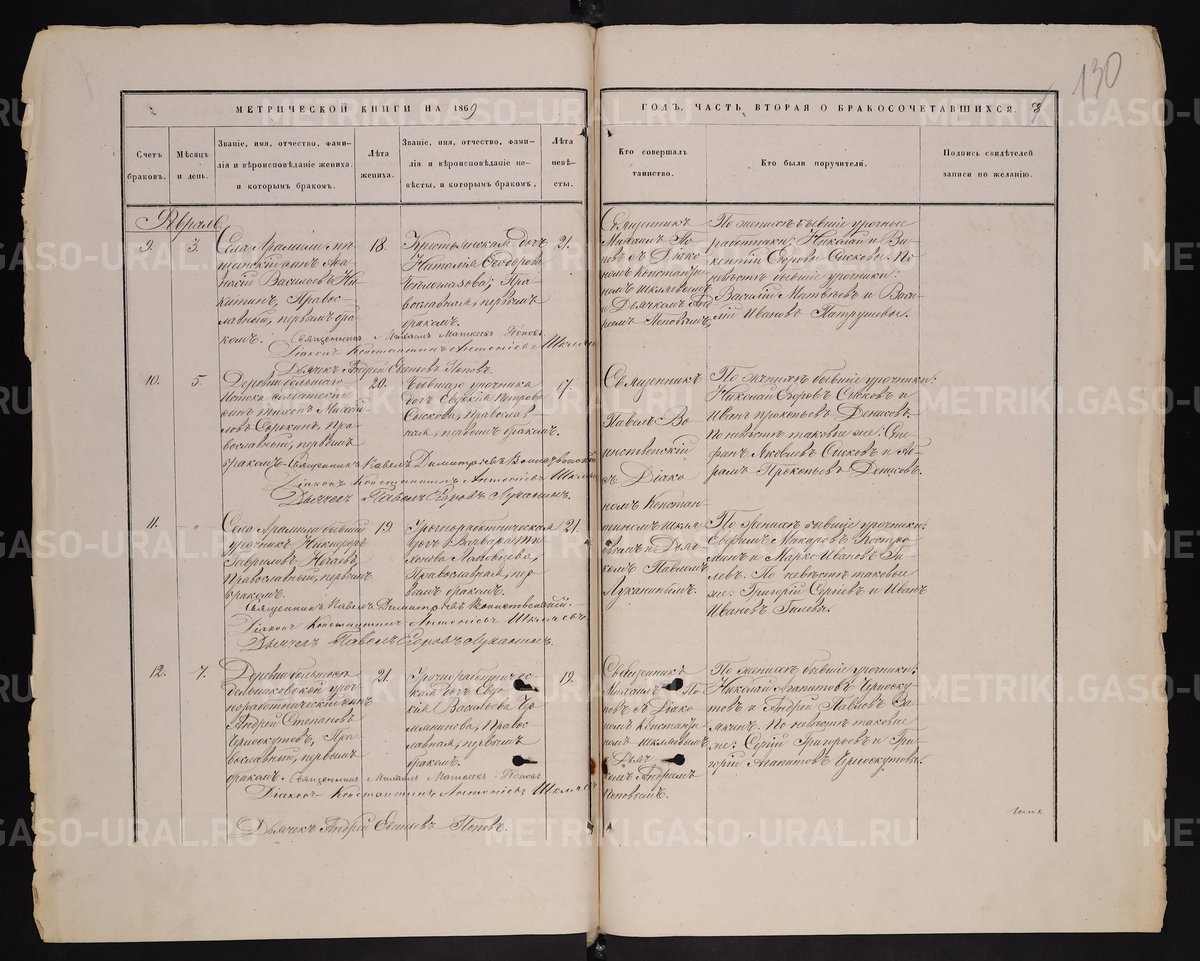 130
МЕТРИЧЕСКОЙ КНИГИ НА 1869
ГОДЪ, ЧАСТЬ ВТОРАЯ О БРАКОСОЧЕТАВШИХСЯ.
Счетъ
браковъ.
Мѣсяцъ
и день.
Званіе, имя, отчество, фами-
лія и вѣроисповѣданіе жениха
и которымъ бракомъ.
Лѣта
жениха.
Званіе, имя, отчество, фами-
лія и вѣроисповѣданіе не-
вѣсты, и которымъ бракомъ,
Лѣта
невѣ-
сты.
Кто совершалъ
таинство.
Кто были поручители.
Подпись свидѣтелей
записи по желанію.
Февраль.
9.
3.
Села Арамили мѣ-
щанскій сынъ
Василіевъ Ни-
китинъ, Правос-
лавный, первымъ бра-
комъ.
18.
Крестьянская дочь
Наталія Ѳеодорова
Правос-
лавная, первымъ
бракомъ.
21.
Священникъ
Михаилъ По-
повъ съ Діако-
номъ Константи-
номъ Шкляевымъ
и Дьячкомъ Анд-
реемъ Поповымъ.
По женихѣ бывшіе урочные
работники: Николай и Ви-
кентій Егоровы Сысковы. По
невѣстѣ бывшіе урочники:
Василій Матвѣевъ и Васи-
лій Ивановъ Патрушевы.
Священникъ Михаилъ Матвѣевъ Поповъ
Діаконъ Константинъ Антоніевъ Шкляевъ
Дьячекъ Андрей Евѳиміевъ Поповъ.
10.
5.
Деревни Большаго
Истока солдатскій
сынъ Тихонъ Михай-
ловъ Сорокинъ, Пра-
вославный, первымъ
бракомъ.
20.
Бывшаго урочника
дочь Евдокія Петрова
Сыскова, Православ-
ная, первымъ бракомъ.
17.
Священникъ
Павелъ Во-
инственскій
съ Діако-
номъ Констан-
тиномъ Шкля-
евымъ и Дьяч-
комъ Павломъ
Луканинымъ.
По женихѣ бывшіе урочники:
Николай Егоровъ Сысковъ и
Иванъ Прокопьевъ Денисовъ.
По невѣстѣ таковые же: Сте-
фанъ Яковлевъ Сысковъ и Аб-
рамъ Прокопьевъ Денисовъ.
Священникъ Павелъ Димитріевъ Воинственскій
Діаконъ Константинъ Антоніевъ Шкляевъ
Дьячекъ Павелъ Егоровъ Луканинъ.
11.
"
Села Арамили бывшій
урочникъ Никифоръ
Гавриловъ Ногаевъ,
Православный, первымъ
бракомъ.
19
Урочноработническая
дочь Варвара
Православная, пер-
вымъ бракомъ.
21.
По женихѣ бывшіе урочники:
Макаровъ Костро-
минъ и Марко Ивановъ Ги-
левъ. По невѣстѣ таковые
же: Григорій Сергіевъ и Иванъ
Ивановъ Гилевы.
Священникъ Павелъ Димитріевъ Воинственскій.
Діаконъ Константинъ Антоніевъ Шкляевъ
Дьячекъ Павелъ Егоровъ Луканинъ.
12.
7.
Деревни
уроч-
ноработническій сынъ
Андрей Степановъ
Черноскутовъ, Пра-
вославный, первымъ
бракомъ.
21.
Урочноработничес-
кая дочь Евдо-
кія Васильева
Правос-
лавная, первымъ
бракомъ.
19.
Священникъ
Михаилъ По-
повъ съ Діако-
номъ Константи-
номъ Шкляевымъ
и Дьяч-
комъ Андреемъ
Поповымъ.
По женихѣ бывшіе урочники:
Николай Агапитовъ Черноску-
товъ и Андрей Павловъ
По невѣстѣ таковые
же: Сергій Григорьевъ и Гри-
горій Агапитовъ Черноскутовы.
Священникъ Михаилъ Матвѣевъ Поповъ
Діаконъ Константинъ Антоніевъ Шкляевъ
Дьячекъ Андрей Евѳиміевъ Поповъ.
METRIKI.GASO-URAL.RU